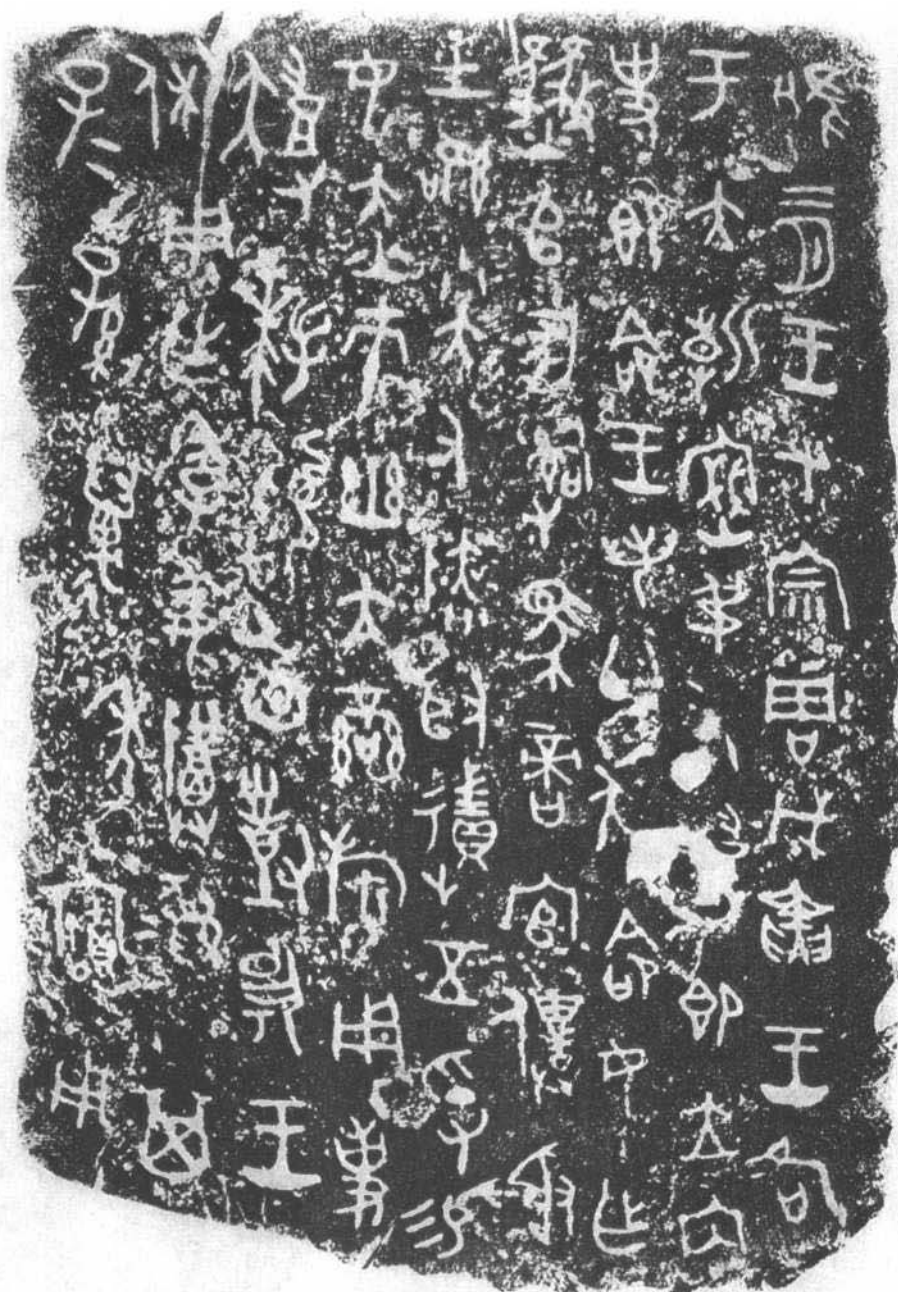 唯三月王才宗周戊寅王各
于大朝密叔右趞即立内
史即命王若曰趞命女乍
𢼊𠂤冢𤔲馬啻官僕射
士訊小大又鄰取徵五寽易
女赤巿幽亢䜌旂用事
趞拜𩒨首對揚王
休用乍季姜尊彝其
子=孫=萬年寶用